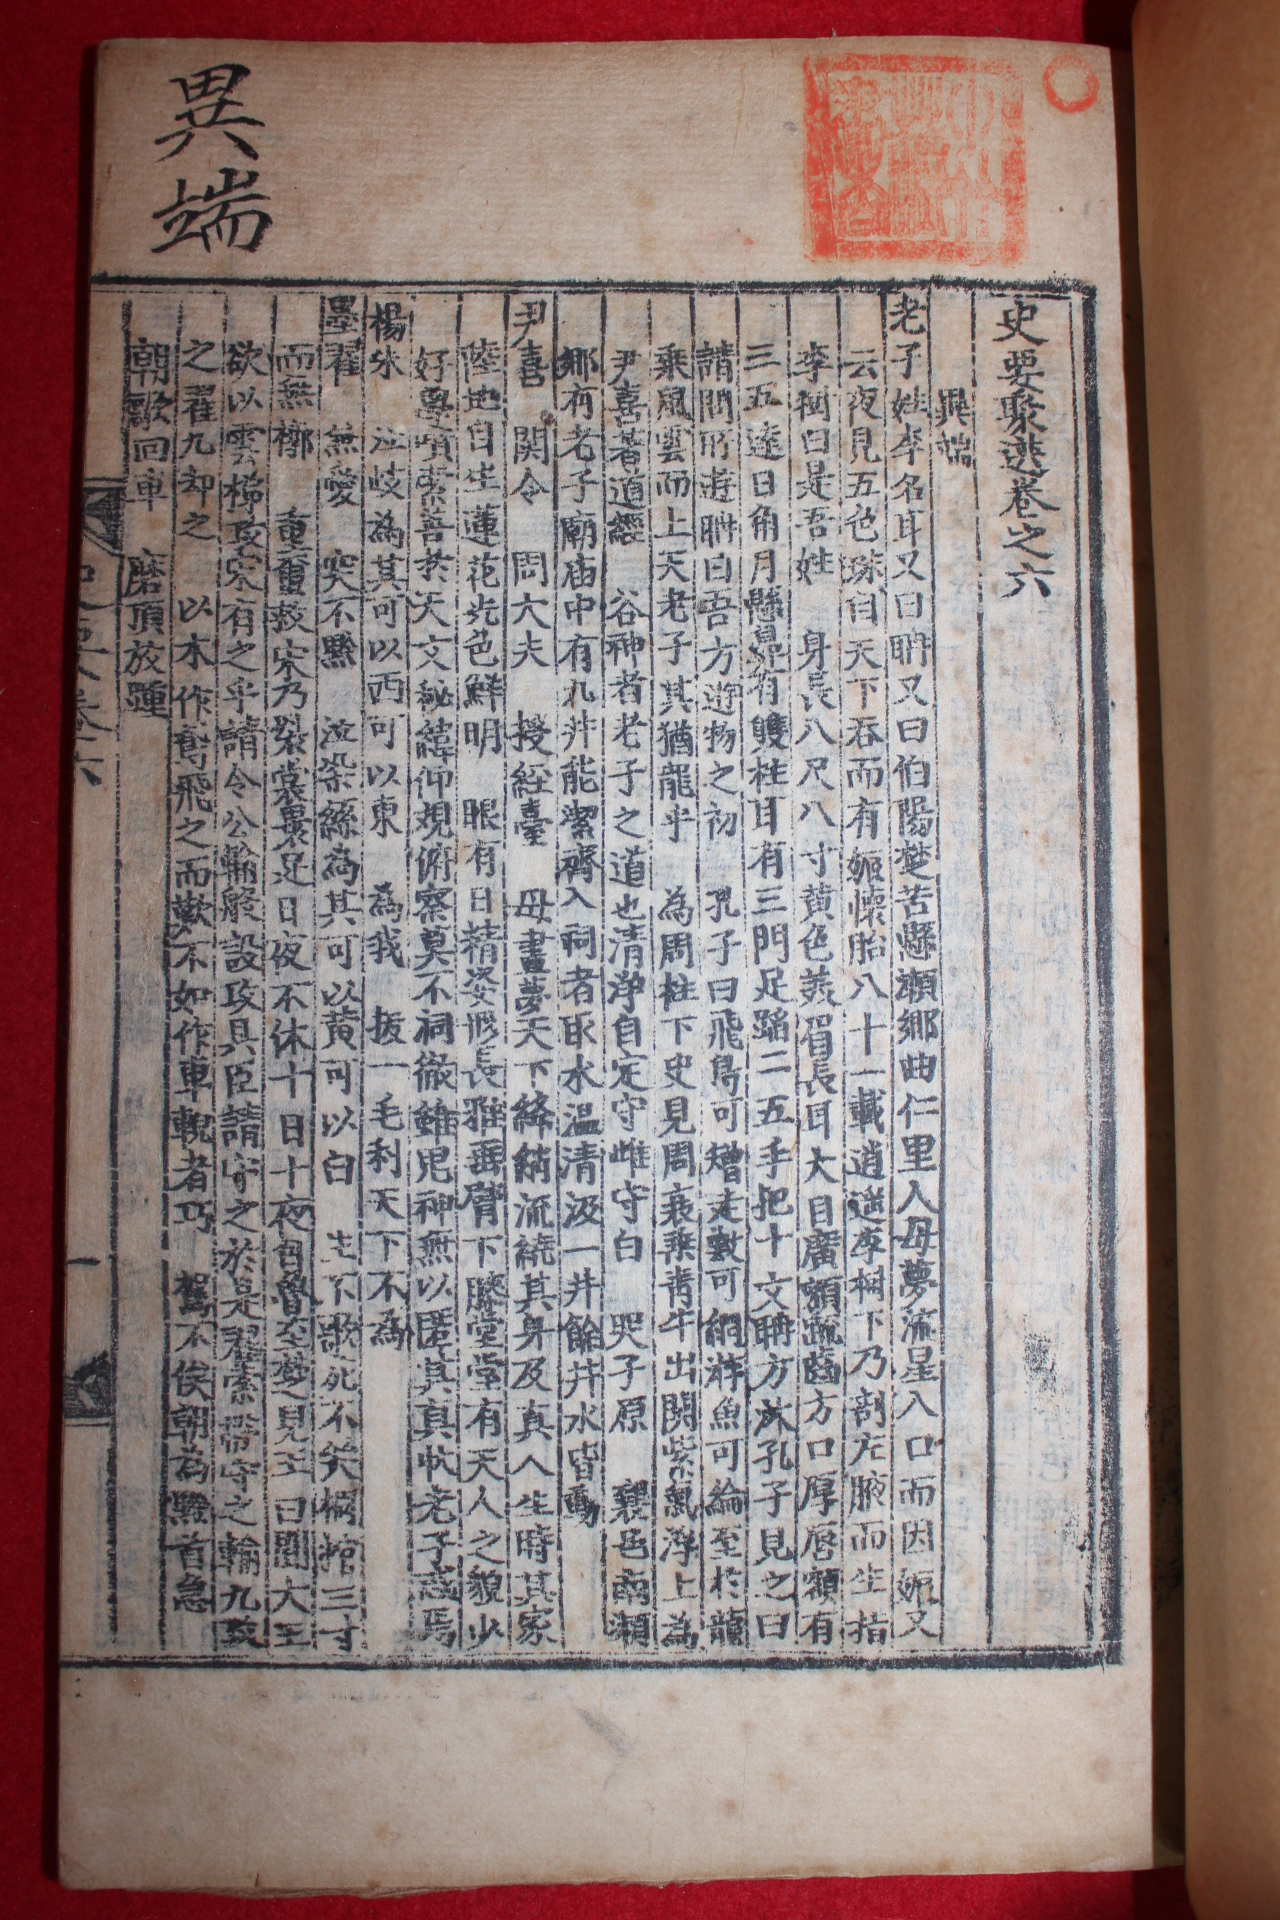 異端
史要聚選卷之六
異端
老子姓李名耳又曰聃又曰伯陽楚苦縣瀨鄉曲仁里人母夢流星入口而因娠又
云夜見五色珠自天下吞而有娠懷胎八十一載逍遙李樹下乃剖左腋而生指
李樹曰是吾姓 身長八尺八寸黃色美眉長耳大目廣額疏齒方口厚唇額有
三五達日角月懸鼻有雙柱耳有三門足蹈二五手把十文聃方沐孔子見之曰
請問所遊聃曰吾方遊物之初 孔子曰飛鳥可矰走獸可網游魚可綸至於龍
乘風雲而上天老子其猶龍乎 為周柱下史見周衰乘靑牛出関紫氣浮上為
尹喜著道經 谷神者老子之道也清淨自定守雌守白 哭子原 襄邑南瀨
鄉有老子廟庙中有九井能潔齊入祠者取水温清汲一井餘井水皆動
尹喜 関令 問大夫 授經臺 母晝夢天下絳綃流繞其身及真人生時其家
陸地自生蓮花光色鮮明 眼有日精姿形長雅垂臂下膝堂堂有天人之貌少
好學墳索善扵天文秘緯仰視俯察莫不祠徹雖鬼神無以匿其真狀老子惑焉
楊朱 泣岐為其可以西可以東 為我 拔一毛利天下不為
墨翟 兼愛 突不黔 泣染絲為其可以黃可以白 生不歌死不笑桐棺三寸
而無槨 重繭救宋乃裂裳裹足日夜不休十日十夜自魯至楚見王曰聞大王
欲以雲梯攻宋有之乎請令公輸般設攻具臣請守之於是翟縈帶守之輸九攻
之翟九却之 以木作鳶飛之而歎不如作車輗者巧 駕不俟朝為黔首急
朝歌回車 磨頂放踵
史要 卷六
一